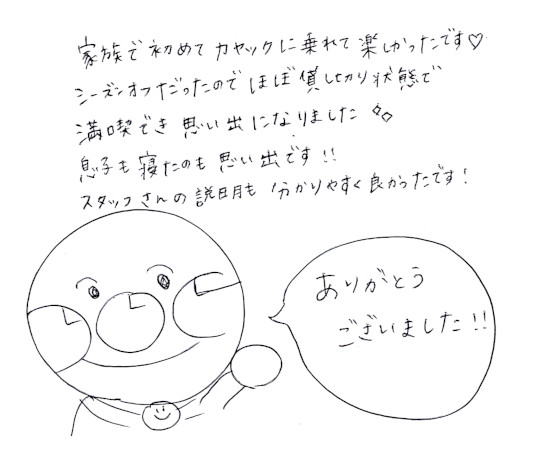 家族で初めてカヤックに乗れて楽しかったです♡
シーズンオフだったのでほぼ貸し切り状態で
満喫でき思い出になりました
息子も寝たのも思い出です!!
スタッフさんの説明も分かりやすく良かったです!
ありがとう
ございました!!